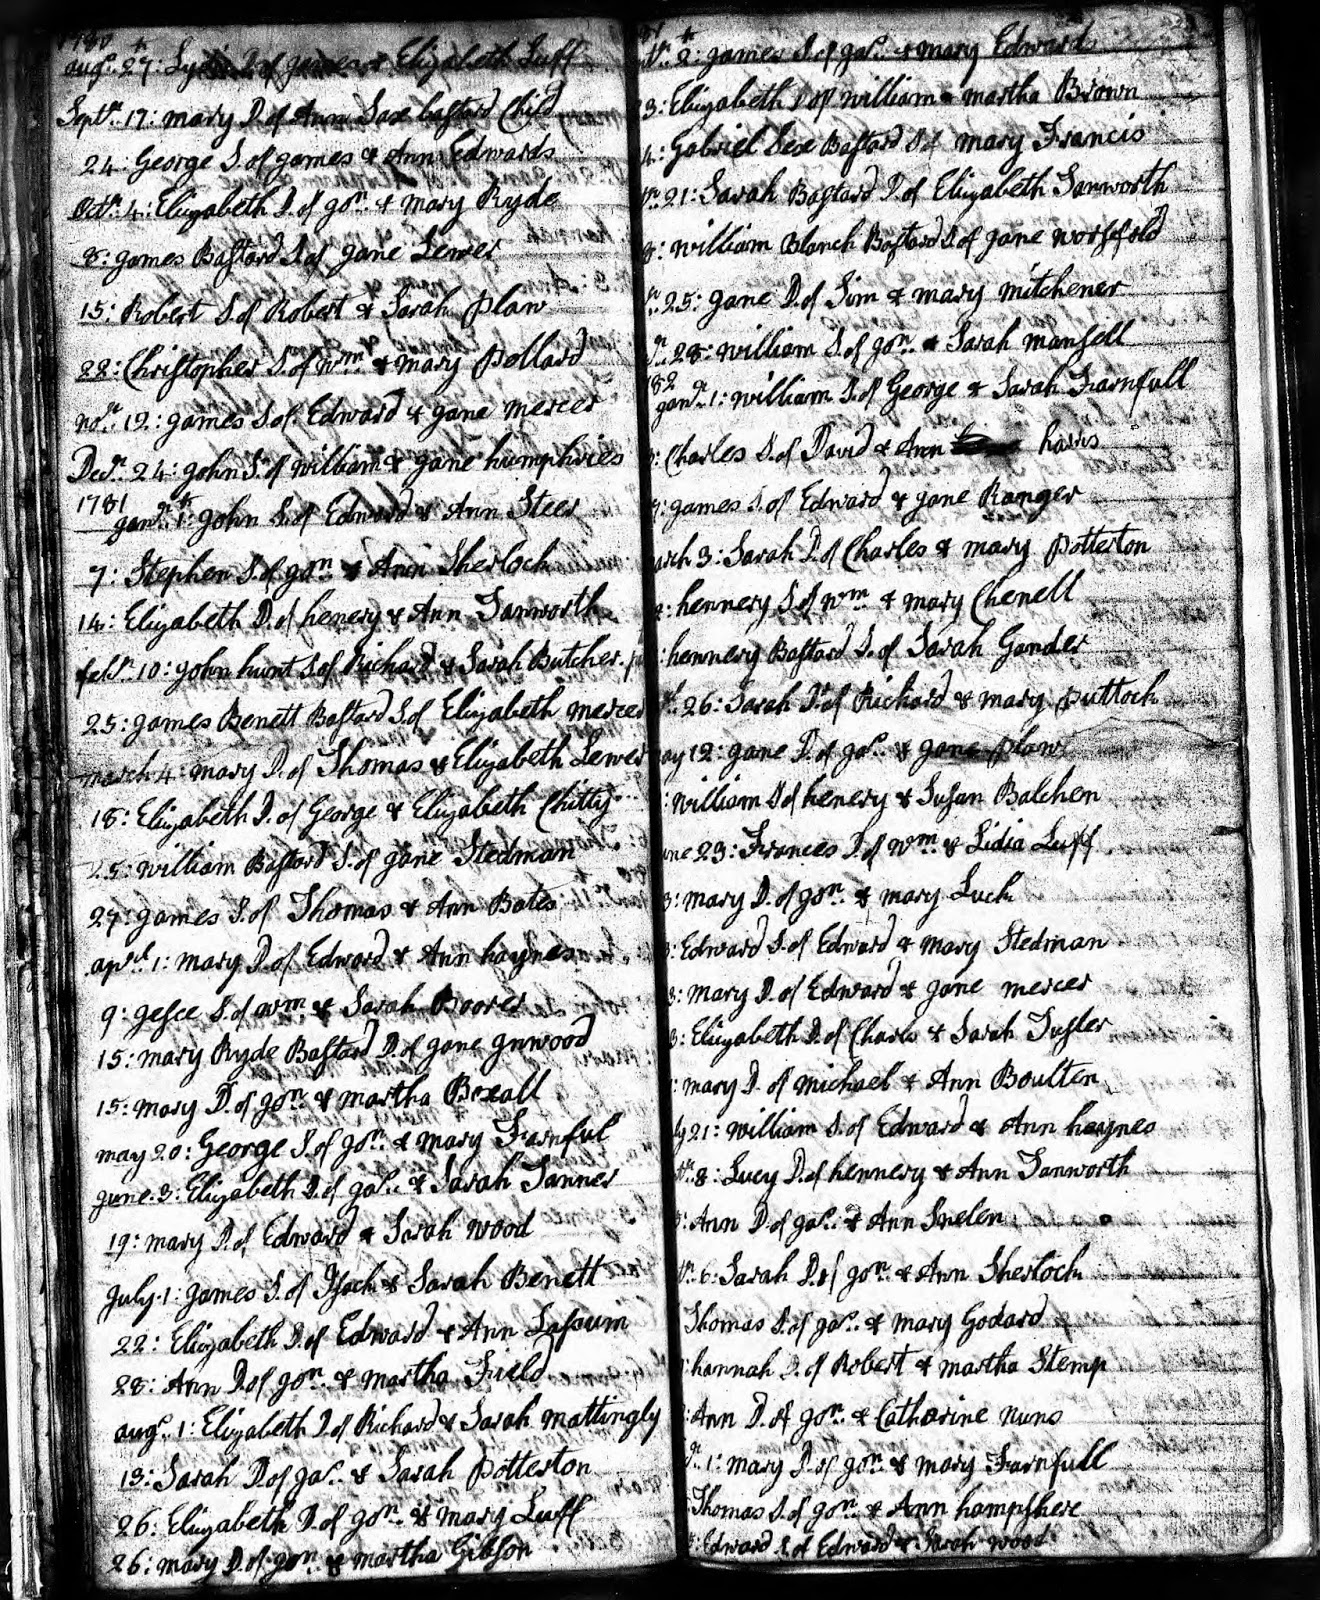 1780
augst 27th: Lydia D. of James & Elizabeth Luff
Septr. 17: mary D. of Ann Sax bastard Child
24: George S. of James & Ann Edwards
Octr. 4: Elizabeth D. of Jon. & mary Ryde
8: James Bastard S. of Jane Lewer
15: Robert S. of Robert & Sarah Plaw
22: Christopher S. of Wm & mary Pollard
novr. 12: James S. of Edward & Jane mercer
Decr. 24: John S. of William & Jane humphries
1781
Janr. 1: John S. of Edward & Ann Steer
7: Stephen S. of Jon & Ann Sherlock
14: Elizabeth D. of henery & Ann Tanworth
febr. 10: John hunt S. of Richard & Sarah Butcher
25: James Benett Bastard S. of Elizabeth mercer
march 4: mary D. of Thomas & Elizabeth Lewer
18: Elizabeth D. of George & Elizabeth Chitty
25: William Bastard S. of Jane Stedman
27: James S. of Thomas & Ann Bates
apreil 1: mary D. of Edward & Ann haynes
9: Jesce S. of Wm & Sarah Boorer
15: mary Ryde Bastard D. of Jane Inwood
15: mary D. of Jon. & martha Boxall
may 20: George S. of Jon. & mary Farnful
June 3: Elizabeth D. of Jas. & Sarah Tanner
19: mary D. of Edward & Sarah Wood
July 1: James S. of Isack & Sarah Benett
22: Elizabeth D. of Edward & Ann Lassum
28: Ann D. of Jon. & martha Field
augst 1: Elizabeth D. of Richard & Sarah mattingly
13: Sarah D. of Jas. & Sarah Potterton
26: Elizabeth D. of Jon. & mary Luff
26: mary D. of Jon & martha Gibson
2: James S. of Jas. & mary Edwards
3: Elizabeth D. of William & martha Brown
4: Gabriel Bastard S. of mary Francis
21: Sarah Bastard D. of Elizabeth Tanworth
8: William Blanch Bastard S. of Jane Worsfold
25: Jane D. of Sim & mary mitchener
28: William S. of Jon. & Sarah mansell
182
Janr. 1: William S. of George & Sarah Farnfull
Charles S. of David & Ann haris
James S. of Edward & Jane Ranger
arch 3: Sarah D. of Charles & mary Potterton
hennery S. of Wm & mary Chenell
hennery Bastard S. of Sarah Gander
26: Sarah D. of Richard & mary Puttock
ay 12: Jane D. of Jas. & Jane Plaw
William S. of henery & Susan Balchen
une 23: Frances D. of Wm & Lidia Luff
3: mary D. of Jon. & mary Luck
Edward S. of Edward & mary Stedman
mary D. of Edward & Jane mercer
Elizabeth D. of Charls & Sarah Tusler
mary D. of michael & Ann Boulten
ly 21: William S. of Edward & Ann haynes
8: Lucy D. of hennery & Ann Tanworth
Ann D. of Jas. & Ann Snelen
6: Sarah D. of Jon. & Ann Sherlock
Thomas S. of Jas. & mary Godard
hannah D. of Robert & martha Stemp
Ann D. of Jon. & Catharine nuns
1: mary D. of Jon. & mary Farnfull
Thomas S. of Jon. & Ann hampshere
Edward S. of Edward & Sarah Wood